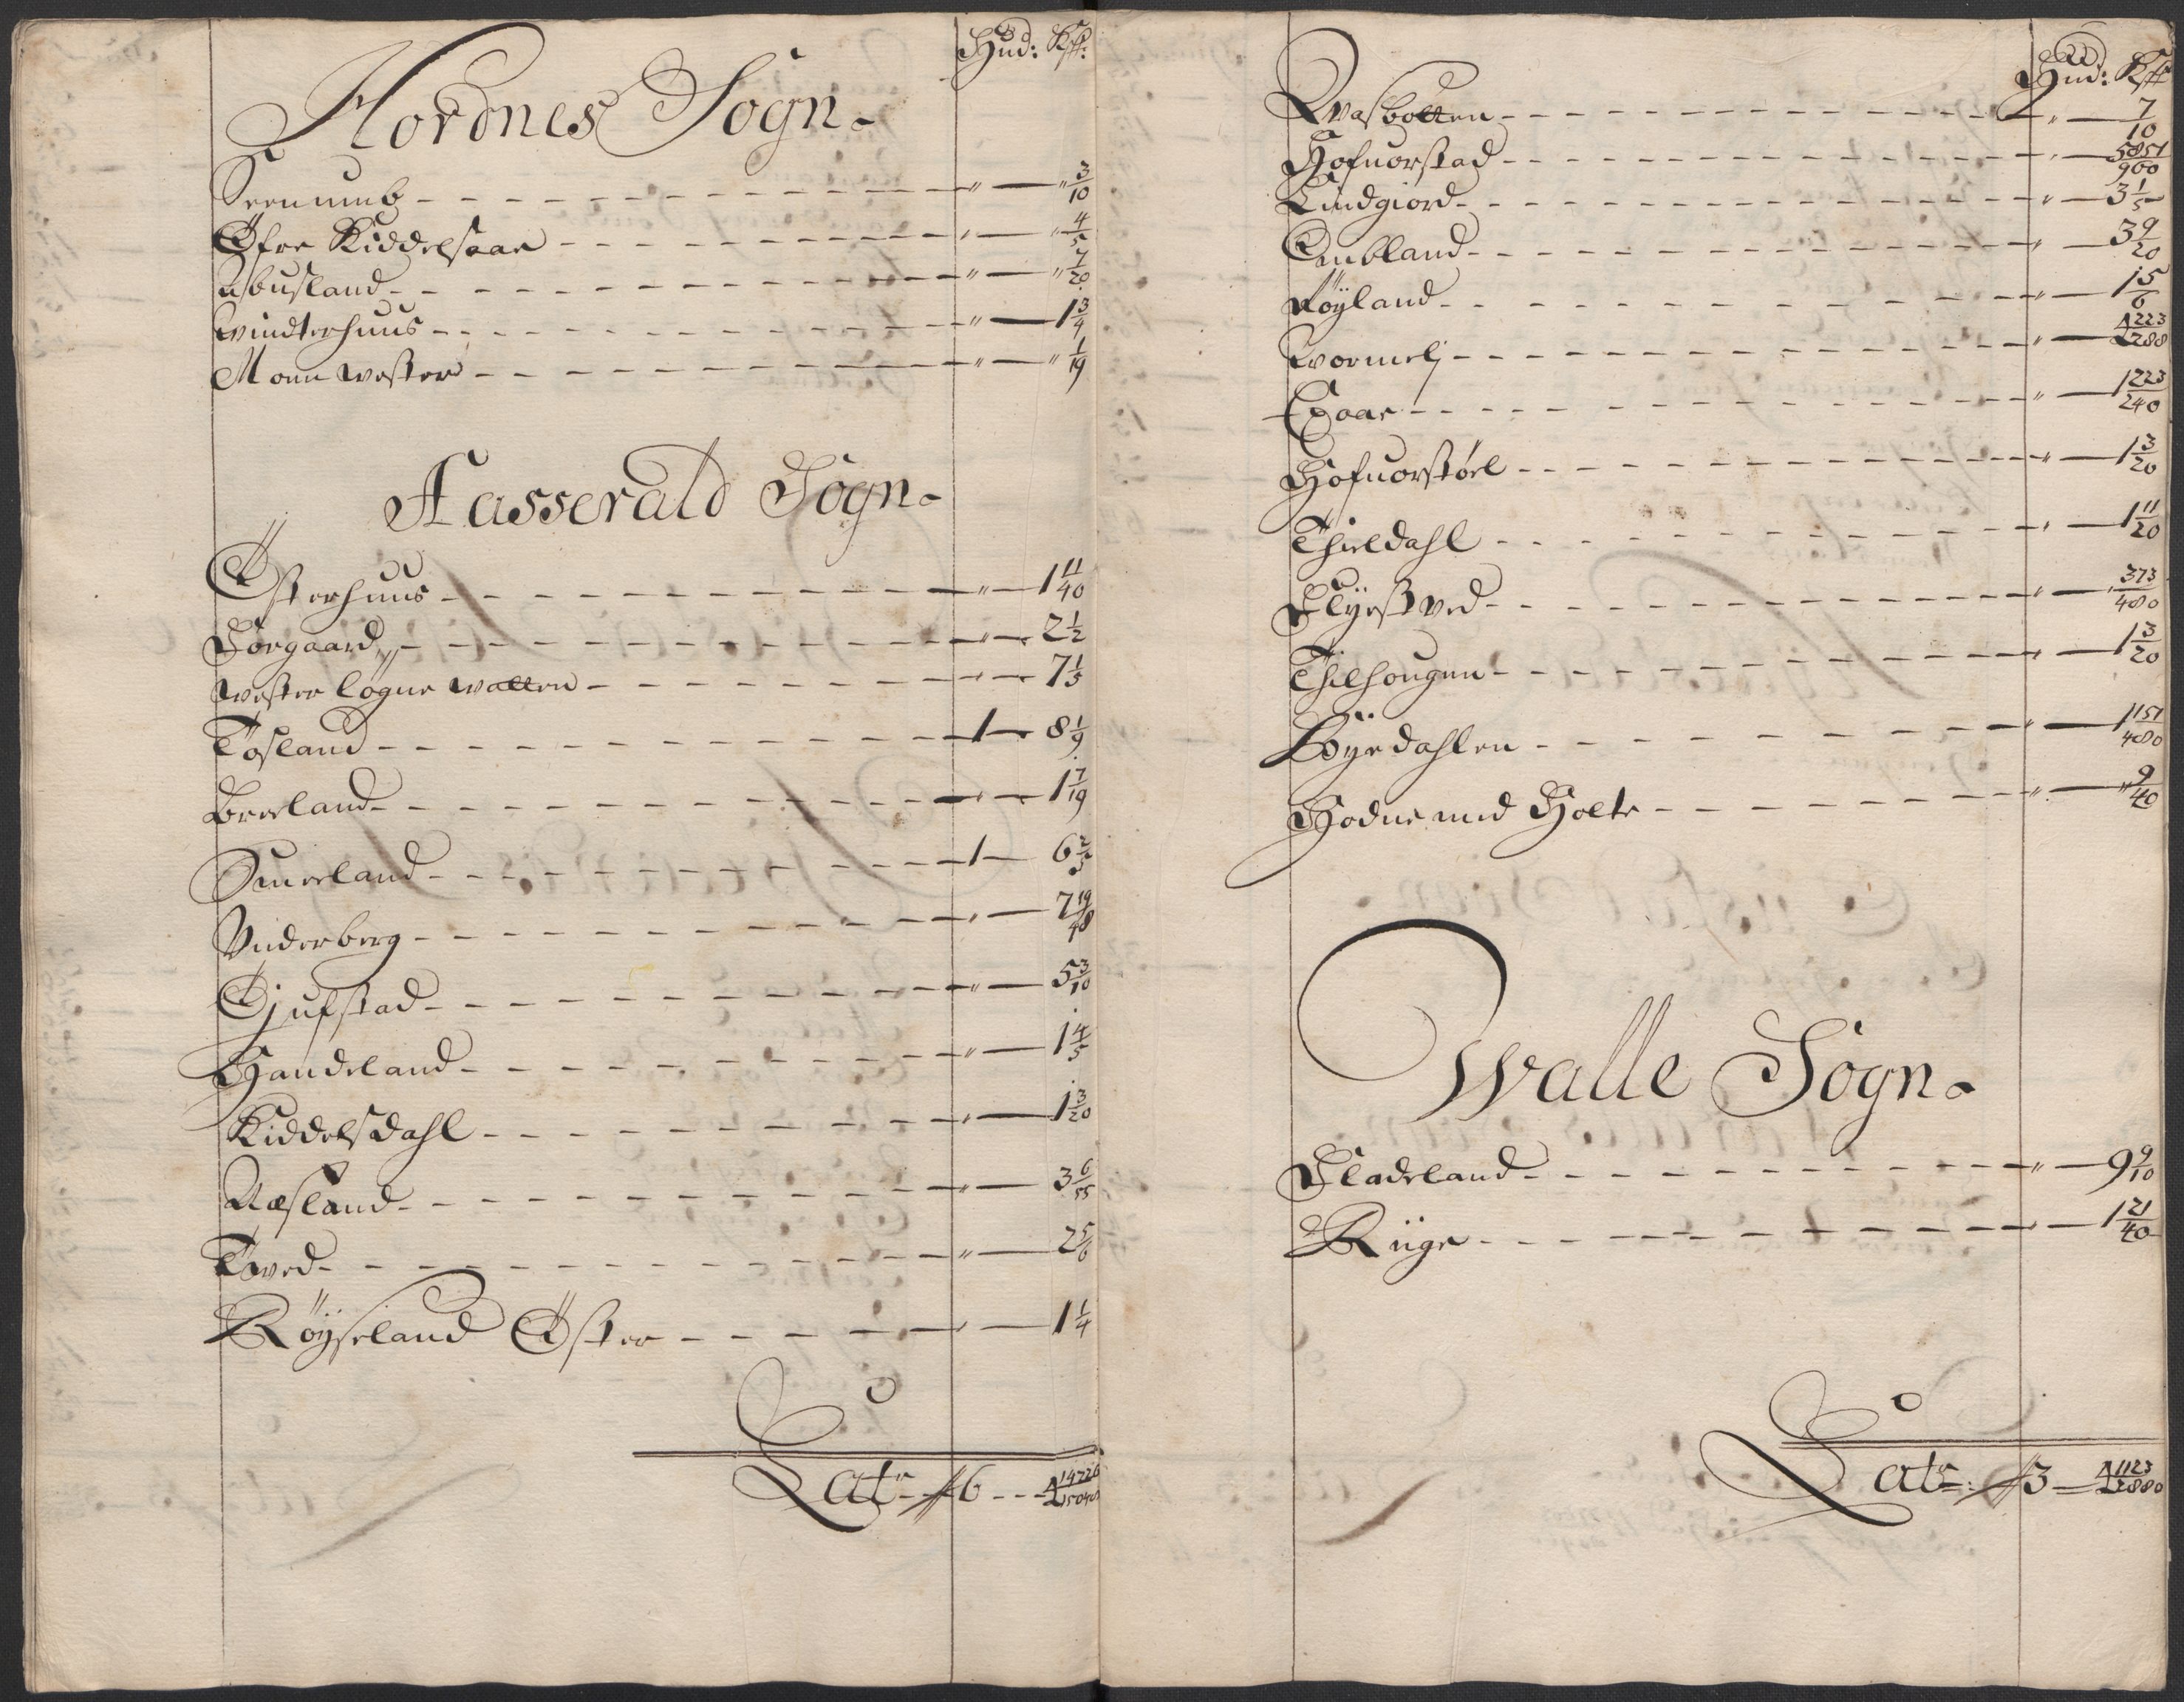 Hud: Kß:
Hordnes Sogn.
Seenumb - - - " — " 3/10
Øfre Kiddelsaae - - - " — " 4/5
Ubusland - - - " — " 7/20
Windterhuus - - - " — 1 3/4
Moen Wester - - - " — " 1/19
Aasserald Sogn.
Østerhuus - - - " — 1 11/40
Borgaard - - - " — 2 1/2
Wester Logne Watten - - - " — 7 1/5
Tosland - - - 1 — 8 1/9
Breeland - - - " — 1 7/19
Sueeland - - - 1 — 6 2/3
Underberg - - - " — 7 19/48
Giufstad - - - " — 5 3/10
Handeland - - - " — 1 4/5
Kiddelsdahl - - - " — 1 3/20
Aasland - - - " — 3 6/55
Tved - - - " — 2 5/6
Røyseland Øster - - - " — 1 1/4
Lat - - 6 - - - 4
Hud: Kß
Qvasbotten - - - " — 7/10
Hofuorstad - - - " — 5851/960
Lindgiord - - - " — 3 1/5
Embland - - - " — 3 9/20
Røyland - - - " — 1 5/6
Wormelj - - - " — 4 223/288
Egaae - - - " — 1 223/240
Hofuorstøel - - - " — 1 3/20
Thieldahl - - - " — 1 11/20
Flyestved - - - " — " 373/480
Thielhougen - - - " — 1 3/20
Køyedahlen - - - " — 1 151/480
Hodne med Holte - - - " — " 9/40
Walle Sogn.
Fladeland - - - " — 9 9/10
Riige - - - " — 1 21/40
Lat: 3 — 4 1123/2880